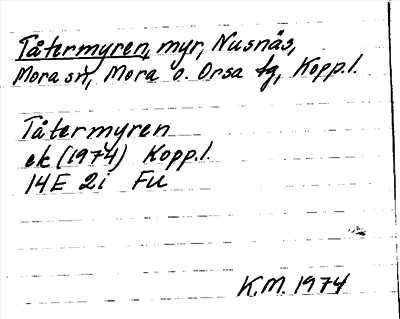 Tåtermyren, myr, Nusnås,
Mora sn, Mora o. Orsa tg, Kopp.l.
Tåtermyren
ek (1974) Kopp.l.
14E 2i Fu
K.M. 1974